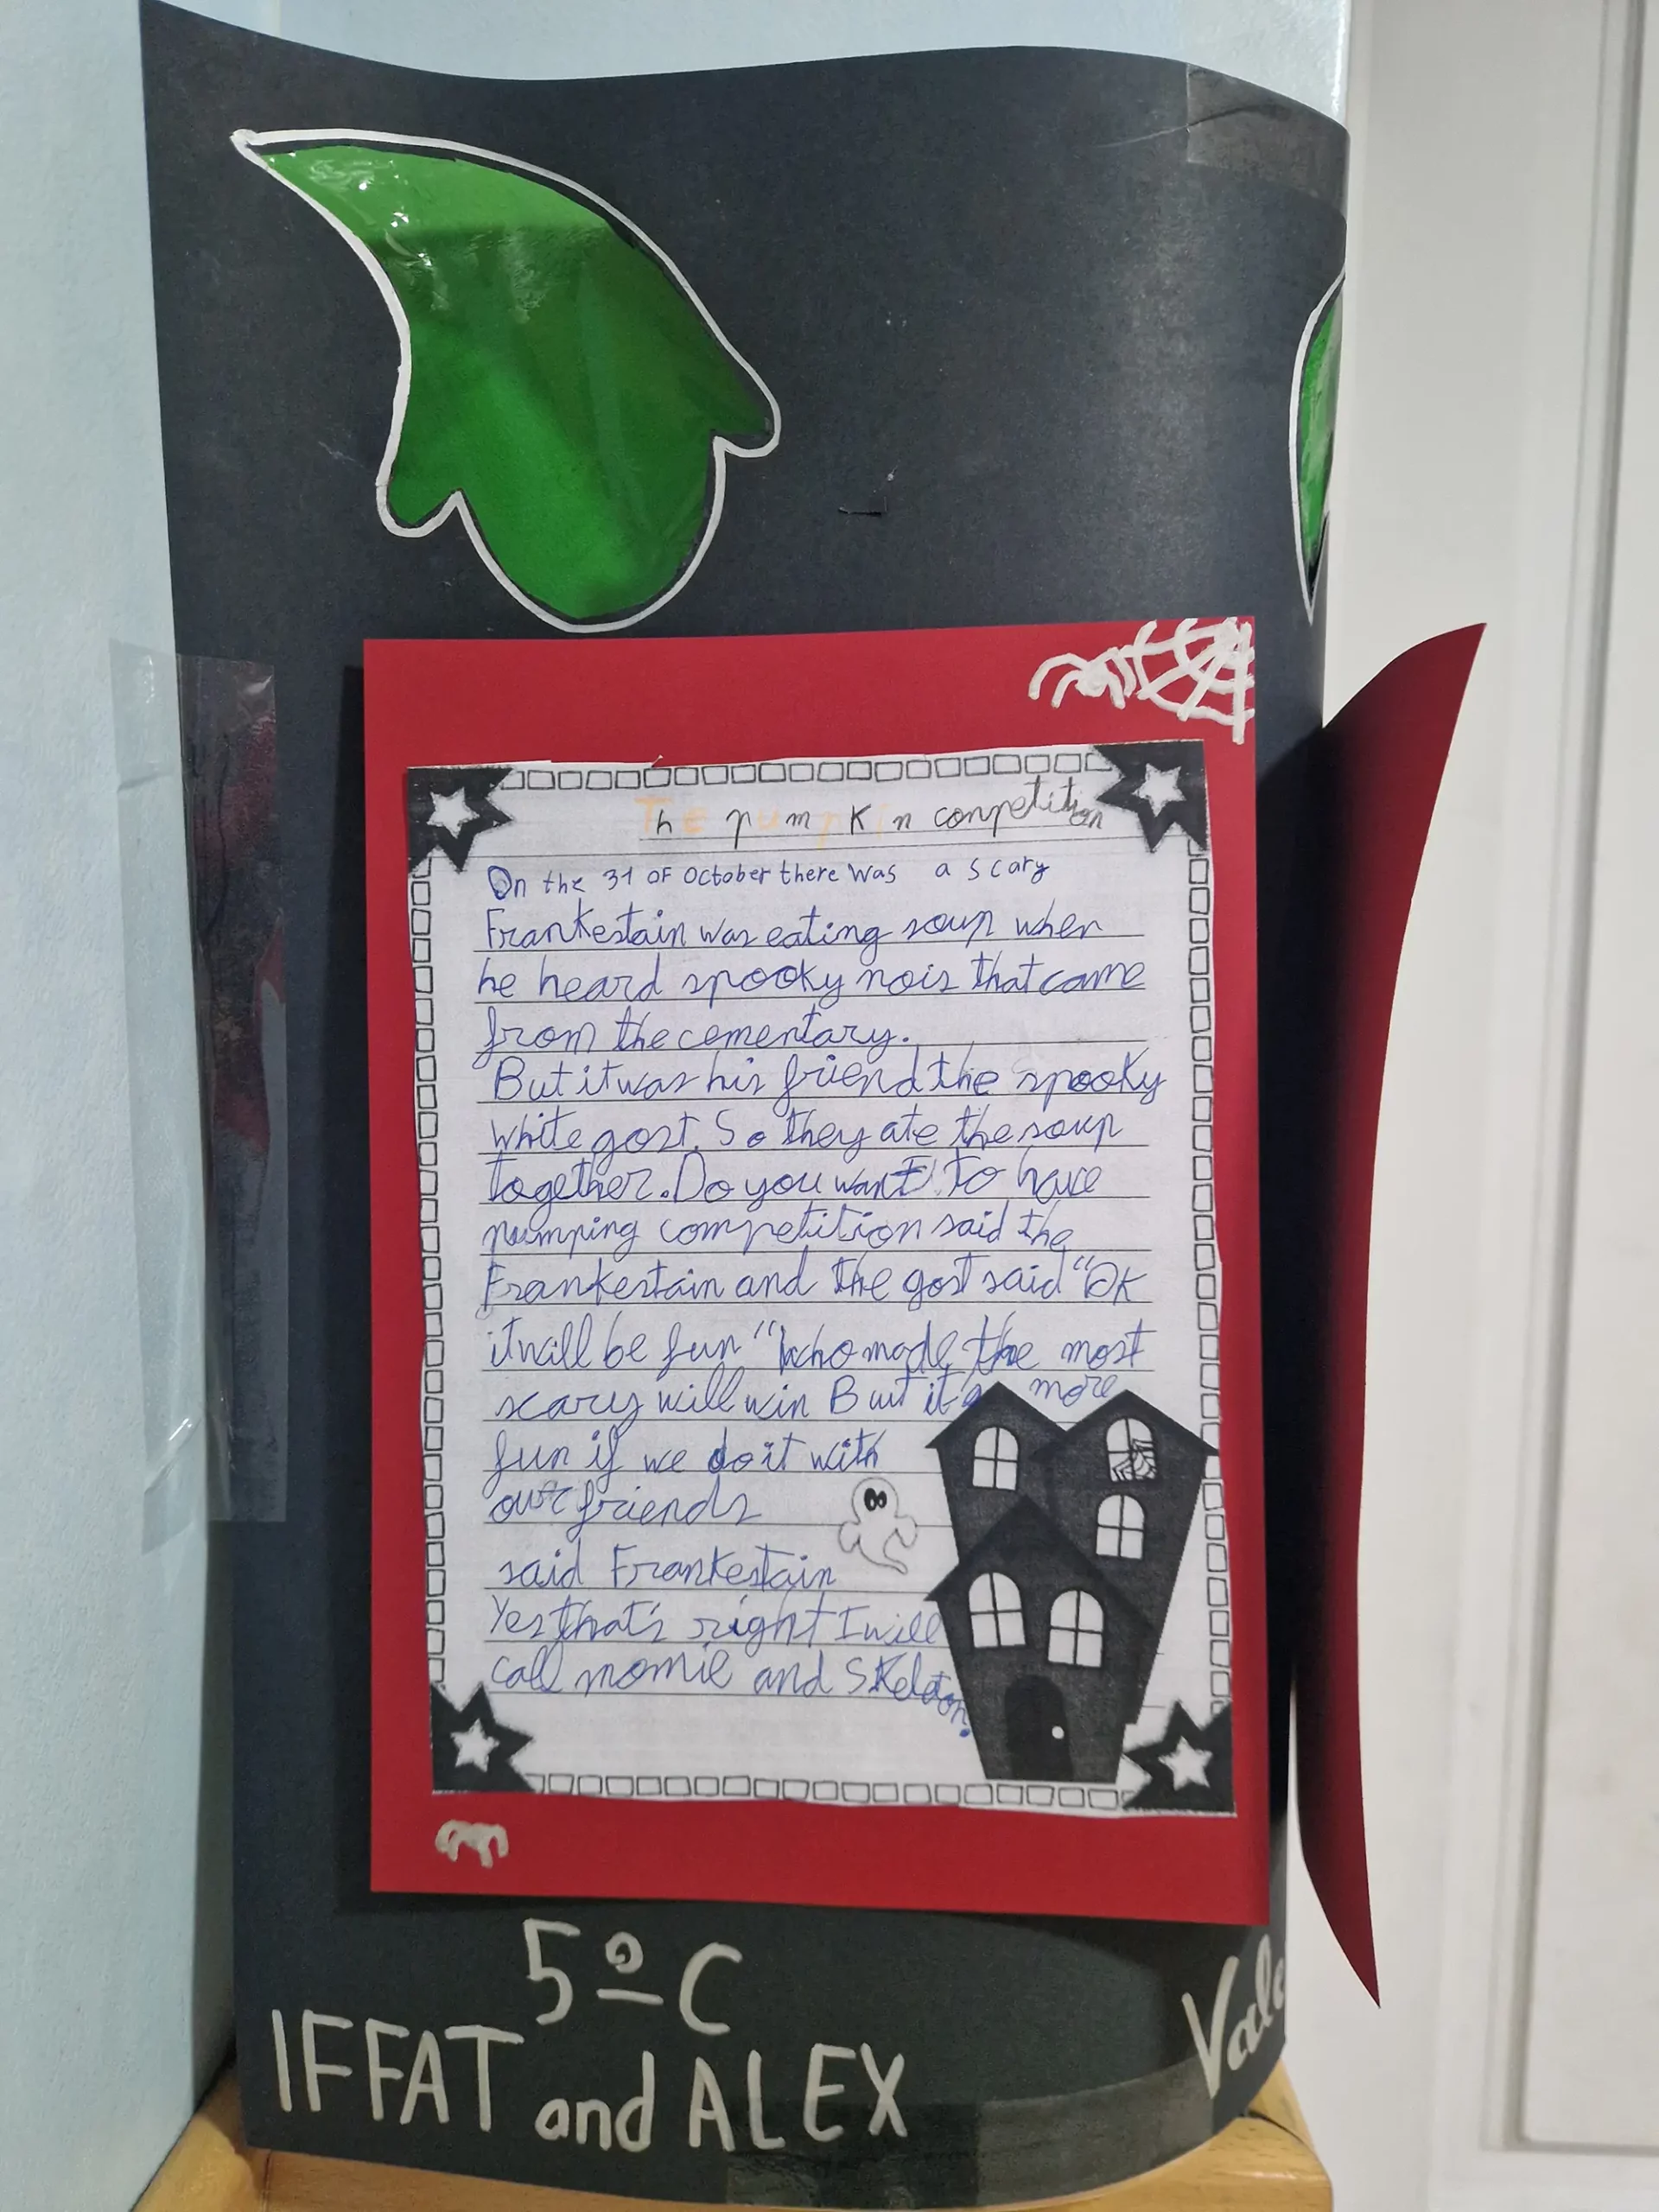 The pumpkin conpetition
On the 31 OF October there was a scary
Frankestain was eating soup when
he heard spooky nois that came
from the cementary.
But it was his friend the spooky
white gost. So they ate the soup
together. Do you want to have
pumping competition said the
Frankestain and the gost said "OK
it will be fun" who made the most
scary will win But it's more
fun if we do it with
our friends
said Frankestain
Yes that's right I will
call momie and Skeleton.
5º C
IFFAT and ALEX